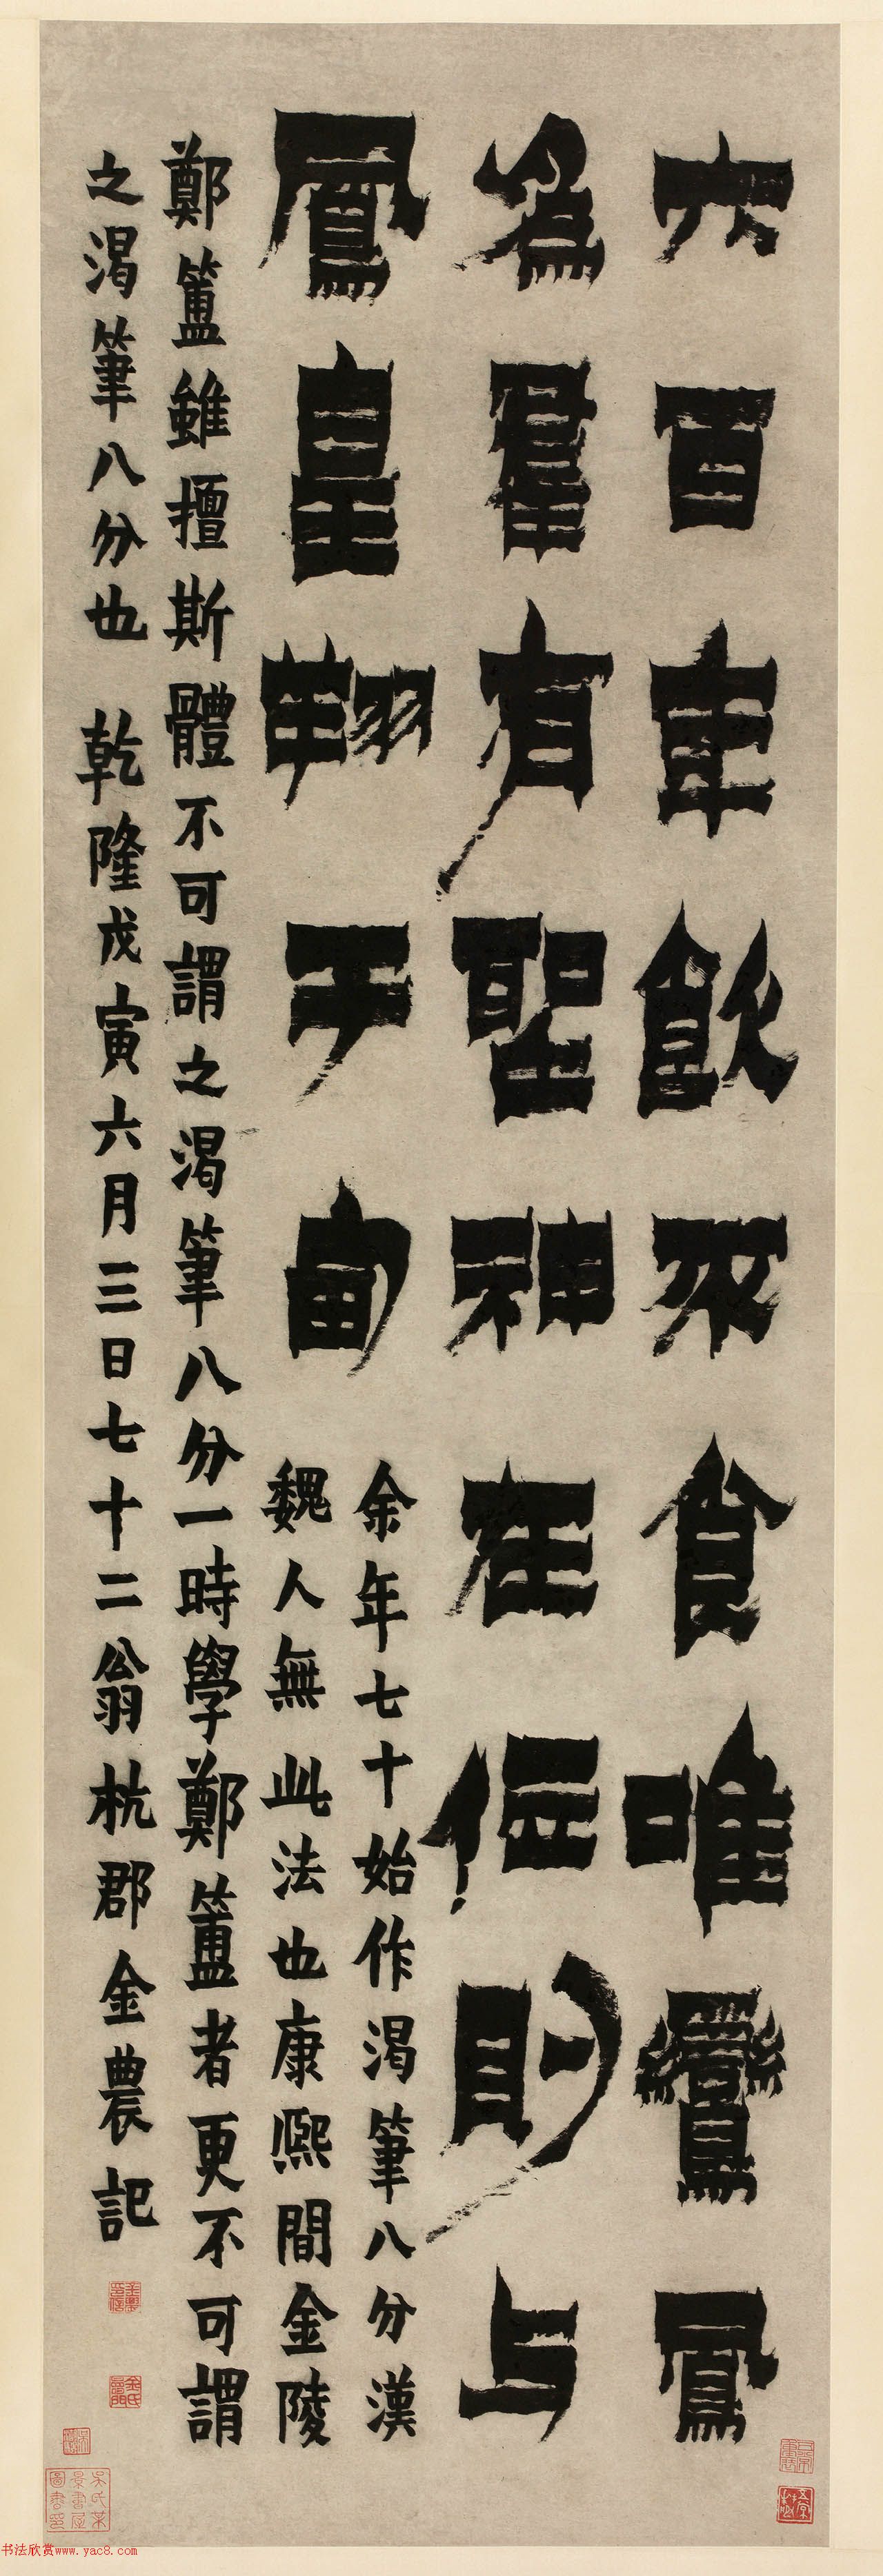 六百年飲不食唯鸞鳳
為羣有聖神在位則与
鳳皇翔于甸
余年七十始作渴筆八分漢
魏人無此法也康熙間金陵
鄭簠雖擅斯體不可謂之渴筆八分一時學鄭簠者更不可謂
之渴筆八分也 乾隆戊寅六月三日七十二翁杭郡金農記
金農印信
金氏壽門
书法欣赏www.yac8.com